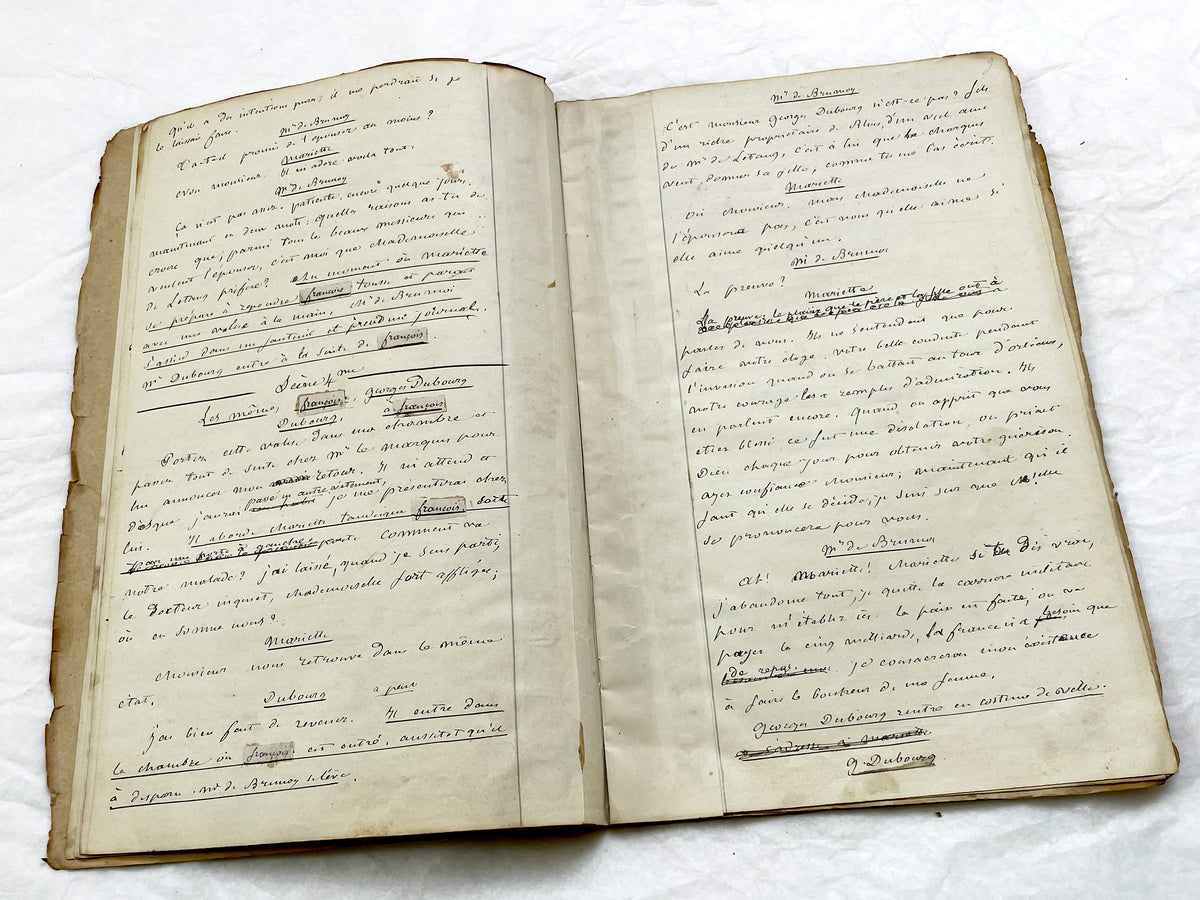 qu'il a des intentions pures, il me perdrait si je
le laissais faire.
Mr de Brunoy
T'a-t-il promis de t'épouser au moins?
Mariette
Oui monsieur. Il m'adore voila tout.
Mr de Brunoy
Ça n'est pas assez. patiente encore quelque jours.
maintenant en deux mots: quelles raisons as-tu de
croire que, parmi tous les beaux messieurs qui
veulent l'épouser, c'est moi que Mademoiselle
de Létang préfère? Au moment où Mariette
se prépare à répondre françois tousse et parait
avec une valise à la main, Mr de Brunoi
s'assied dans un fauteuil et prend un journal.
Mr Dubourg entre à la suite de françois.
Scène 4me
Les mêmes, françois, georges Dubourg
Dubourg, à françois
Portez cette valise dans ma chambre et
passez tout de suite chez Mr le marquis pour
lui annoncer mon retour. Il m'attend et
dès que j'aurai passé un autre vêtement, je me présenterai chez
lui. Il aborde Mariette tandisque françois sorte
par une porte à gauche. Comment va
notre malade? j'ai laissé, quand je suis parti,
le Docteur inquiet, Mademoiselle fort affligée;
où en somme nous?
Mariette
Monsieur nous retrouve dans le même
état.
Dubourg à part
j'ai bien fait de revenir. Il entre dans
la chambre où françois est entré, aussitot qu'il
à disparu. Mr de Brunoy se lève.
Mr de Brunoy
C'est monsieur georges Dubourg n'est-ce pas? fils
d'un riche propriétaire de Blois, d'un vieil ami
de Mr de Létang, c'est à lui que le marquis
veut donner sa fille, comme tu me l'as écrit.
Mariette
oui Monsieur. mais Mademoiselle ne
l'épousera pas, c'est vous qu'elle aime si
elle aime quelqu'un.
Mr de Brunoi
La preuve?
Mariette
La preuve: le plaisir que le père et la fille ont à
parler de vous. Ils ne s'entendent que pour
faire votre éloge. votre belle conduite pendant
l'invasion quand on se battait autour d'orléans,
votre courage les a remplis d'admiration. Ils
en parlent encore. quand on apprit que vous
etiez blessé ce fut une désolation, on priait
Dieu chaque jour pour obtenir votre guérison.
ayez confiance Monsieur; maintenant qu'il
faut qu'elle se décide, je suis sur que Melle
se prononcera pour vous.
Mr de Brunoi
Ah! Mariette! Mariette si tu dis vrai,
j'abandonne tout, je quitte la carrière militaire
pour m'établir ici. la paix est faite, on va
payer les cinq milliards, la france n'a besoin que
de repos. je consacrerai mon existence
à faire le bonheur de ma femme.
georges Dubourg rentre en costume de ville.
il s'adresse à Mariette
g. Dubourg